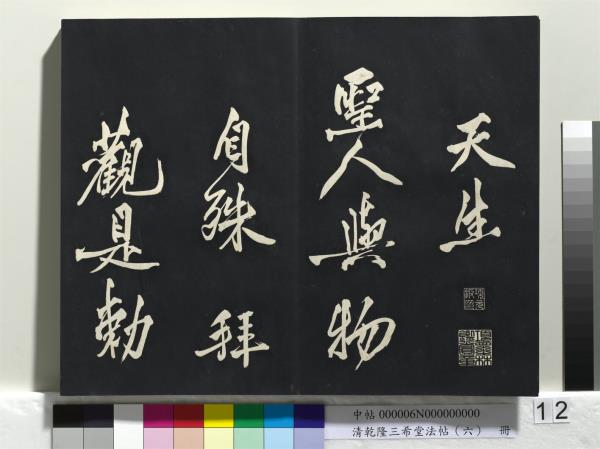 天生
聖人與物
自殊 拜
觀是勅
中帖 000006N000000000
清乾隆三希堂法帖(六) 冊
12